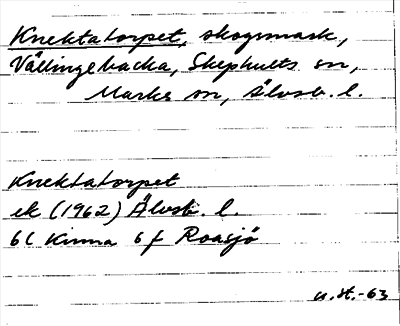 Knektatorpet, skogsmark,
Vällingebacka, Skephults sn,
Marks sn, Älvsb. l.
Knektatorpet
ek (1962) Älvsb. l.
6C Kinna 6 f Roasjö
u.st.-63